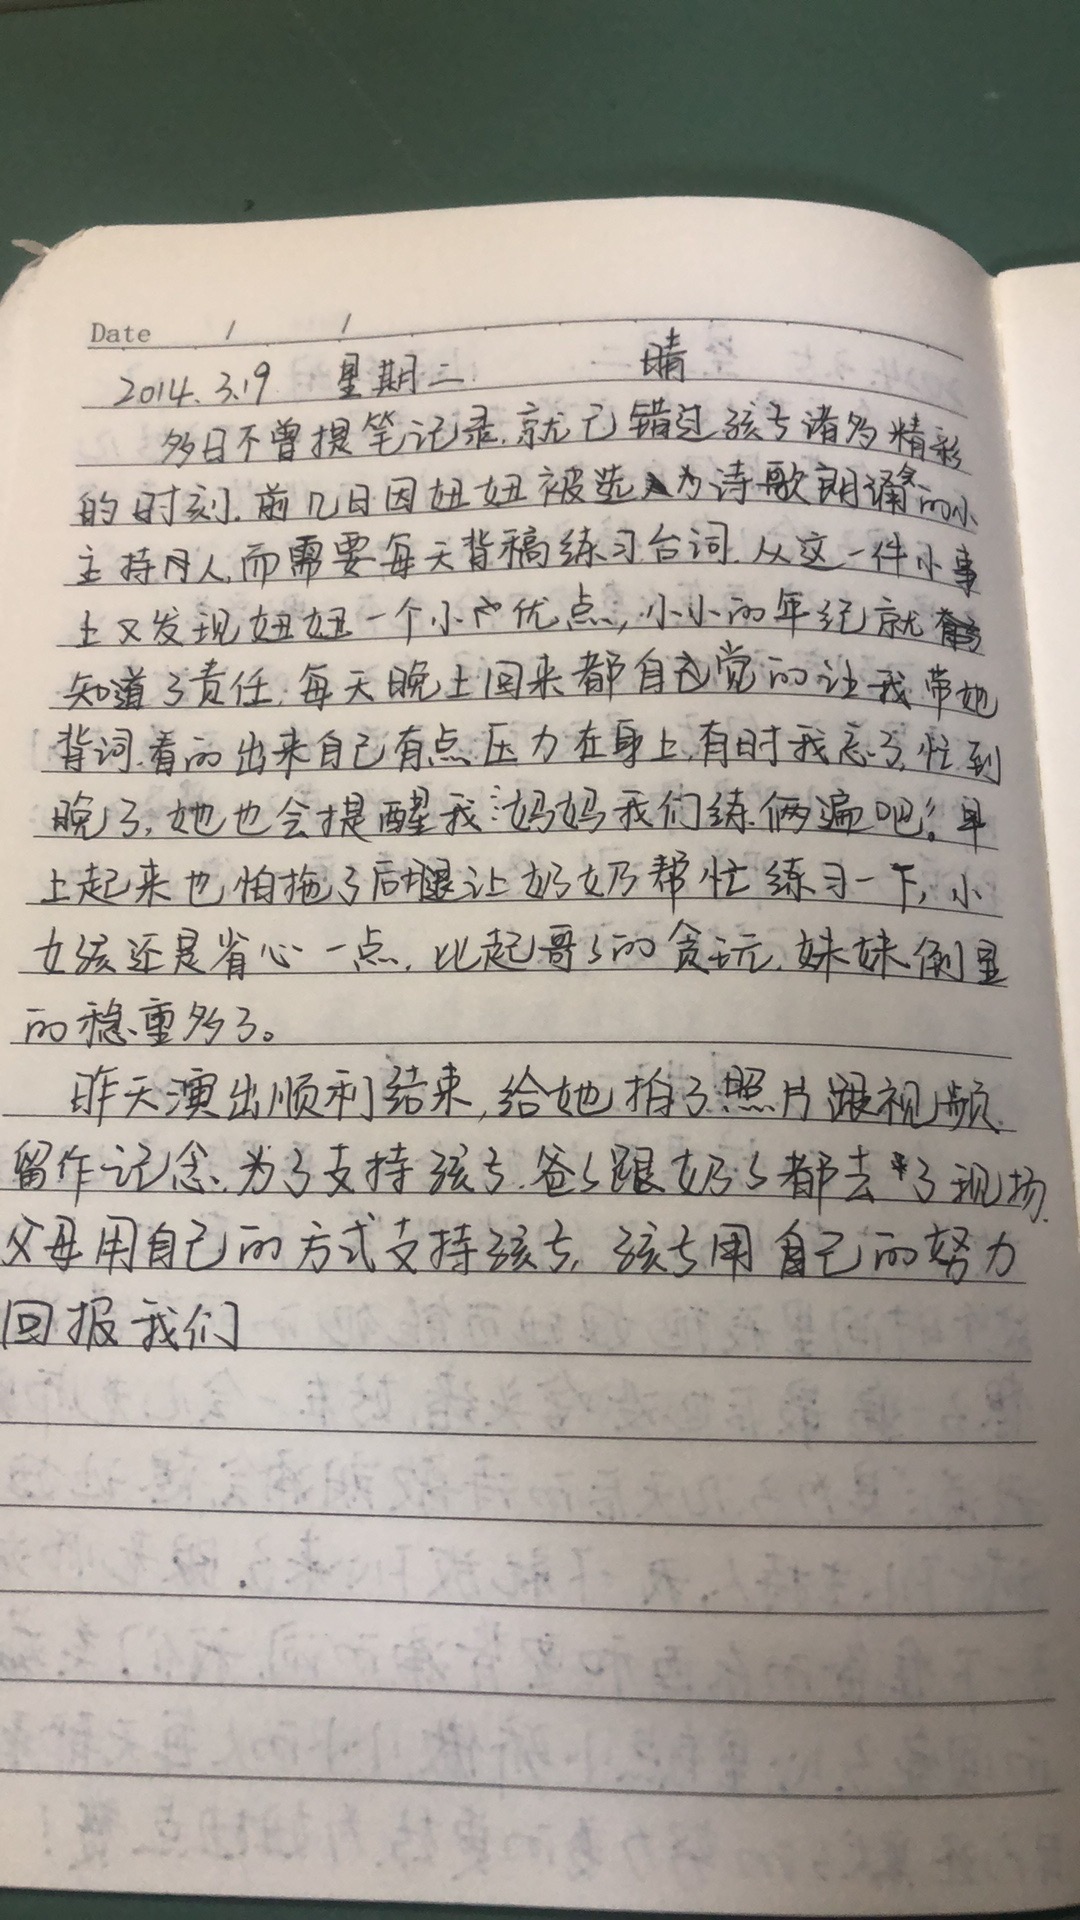 Date / /
2014.3.19 星期二 晴
多日不曾提笔记录,就已错过孩子诸多精彩
的时刻.前几日因妞妞被选为诗歌朗诵会的小
主持人,而需要每天背稿练习台词.从这一件小事
上又发现妞妞一个小优点,小小的年纪就
知道了责任.每天晚上回来都自觉的让我带她
背词.看的出来自己有点压力在身上,有时我忘了,忙到
晚了,她也会提醒我:妈妈我们练俩遍吧!早
上起来也怕拖了后腿让奶奶帮忙练习一下,小
女孩还是省心一点.比起哥々的贪玩.妹妹倒显
的稳重多了。
昨天演出顺利结束,给她拍了照片跟视频
留作记念.为了支持孩子.爸々跟奶々都去了现场.
父母用自己的方式支持孩子,孩子用自己的努力
回报我们